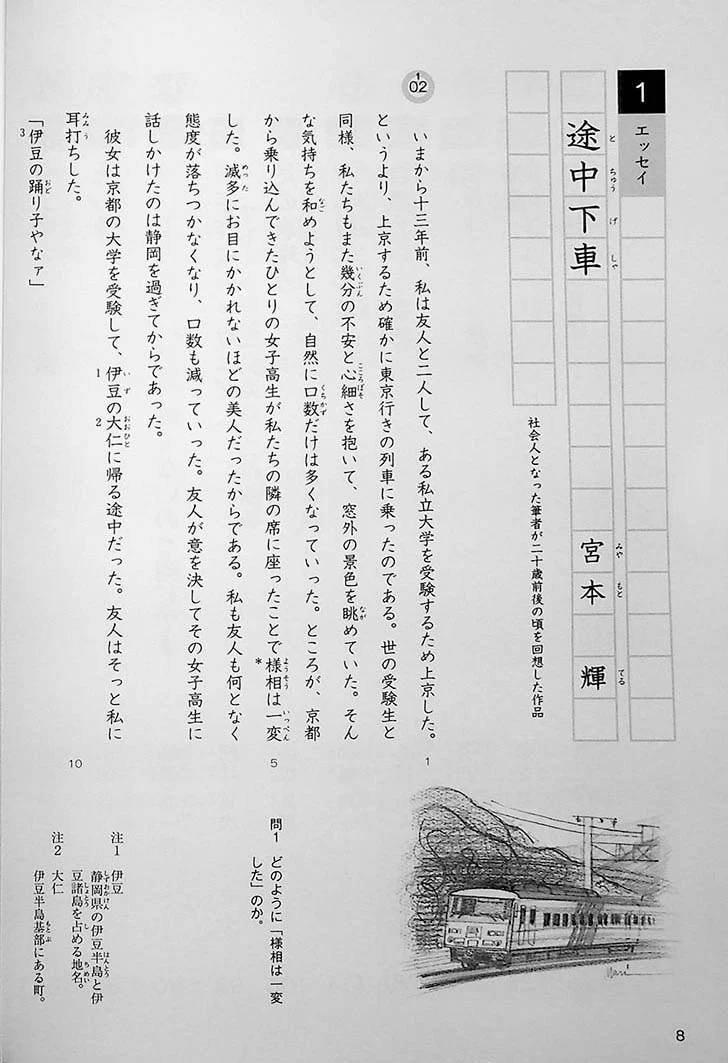 1
エッセイ
途中下車
とちゅうげしゃ
宮本 輝
みやもと てる
社会人となった筆者が二十歳前後の頃を回想した作品
1 02
いまから十三年前、私は友人と二人して、ある私立大学を受験するため上京した。
というより、上京するため確かに東京行きの列車に乗ったのである。世の受験生と
同様、私たちもまた幾分の不安と心細さを抱いて、窓外の景色を眺めていた。そん
な気持ちを和めようとして、自然に口数だけは多くなっていった。ところが、京都
から乗り込んできたひとりの女子高生が私たちの隣の席に座ったことで*様相は一変
した。滅多にお目にかかれないほどの美人だったからである。私も友人も何となく
態度が落ちつかなくなり、口数も減っていった。友人が意を決してその女子高生に
話しかけたのは静岡を過ぎてからであった。
彼女は京都の大学を受験して、1伊豆の2大仁に帰る途中だった。友人はそっと私に
耳打ちした。
「3伊豆の踊り子やなァ」
1
5
10
問1 どのように「様相は一変
した」のか。
注1 伊豆
静岡県の伊豆半島と伊
豆諸島を占める地名。
注2 大仁
伊豆半島基部にある町。
8